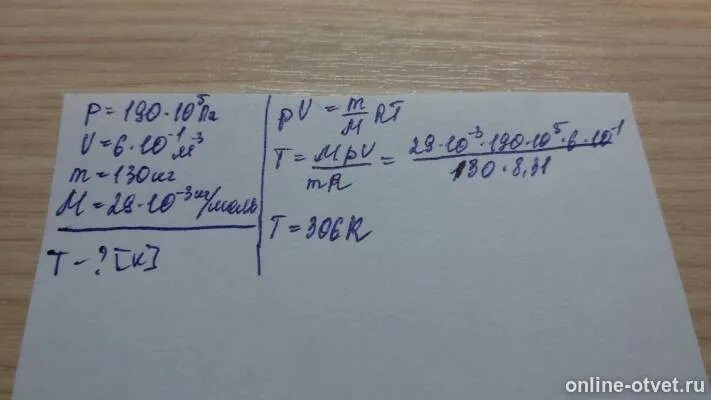 P = 190·10⁵ Па
V = 6·10⁻¹ м³
m = 130 кг
M = 29·10⁻³ кг/моль
T - ? [К]
pV = m/M RT
T = MpV/mR = 29·10⁻³·190·10⁵·6·10⁻¹/130·8,31
T = 306 К
online-otvet.ru